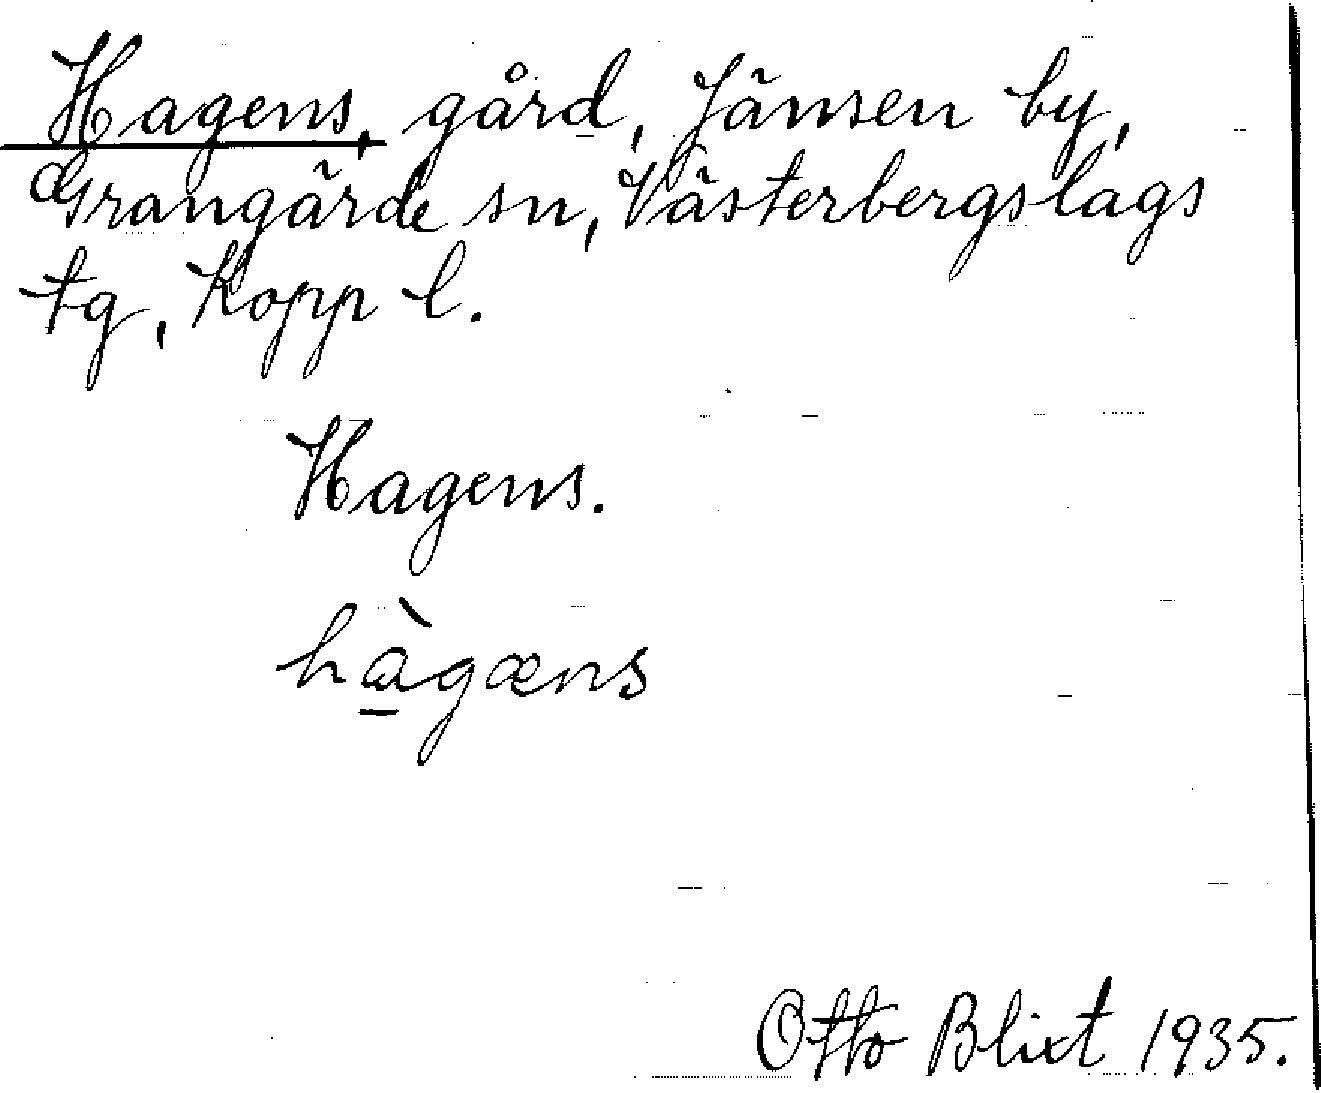 Hagens, gård, Jänsen by,
Grangärde sn, Västerbergslags
tg, Kopp l.
Hagens.
hàgæns
Otto Blixt 1935.